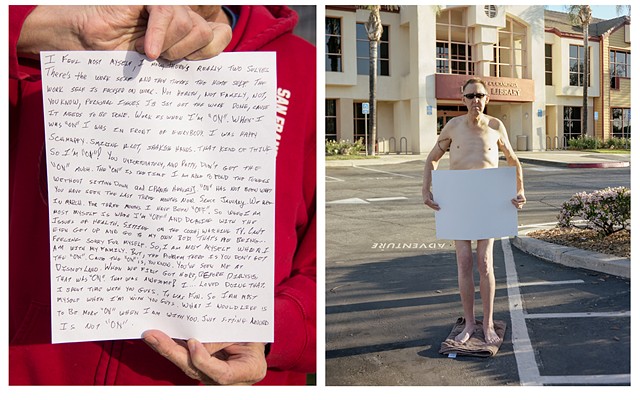 I FEEL MOST MYSELF, I THERE'S REALLY TWO SELVES
THERE'S THE WORK SELF AND THEN THERE'S THE HOME SELF. THE
WORK SELF IS FOCUSED ON WORK. NOT HEALTH, NOT FAMILY, NOT,
YOU KNOW, PERSONAL ISSUES. IT'S JUST GET THE WORK DONE, CAUSE
IT NEEDS TO BE DONE. WORK IS WHEN I'M "ON". WHEN I
WAS "ON" I WAS IN FRONT OF EVERYBODY. I WAS HAPPY
SCHMAPPY. SMILING A LOT, SHAKING HANDS. THAT KIND OF THING.
SO I'M "ON". YOU UNFORTUNATELY, AND PATTY, DON'T GET THE
"ON" MUCH. THE "ON" IS THE TIME I'M ABLE TO
WITHOUT SITTING DOWN AND "ON" HAS NOT BEEN WHAT
YOU HAVE SEEN THE LAST THREE MONTHS NOW. SINCE JANUARY. WE'RE
IN MARCH. FOR THREE MONTHS I HAVE BEEN "OFF". SO WHEN I AM
MOST MYSELF IS WHEN I'M "OFF" AND DEALING WITH THE
ISSUES OF HEALTH. SITTING ON THE COUCH, WATCHING TV. CAN'T
EVEN GET UP AND GO TO MY OWN BED. THAT'S ME BEING
FEELING SORRY FOR MYSELF. SO, I AM MOST MYSELF WHEN I
AM WITH MY FAMILY. BUT, THE PROBLEM THERE IS YOU DON'T GET
THE "ON". CAUSE THE "ON" IS, YOU KNOW, YOU'VE SEEN ME AT
DISNEYLAND. WHEN WE FIRST GOT HERE, BEFORE DIALYSIS.
THAT WAS "ON". THAT WAS AWESOME! I... LOVED DOING THAT.
I ENJOY TIME WITH YOU GUYS. IT WAS FUN. SO I AM MOST
MYSELF WHEN I'M WITH YOU GUYS. WHAT I WOULD LIKE IS
TO BE MORE "ON" WHEN I AM WITH YOU. JUST SITTING AROUND
IS NOT "ON".
SAN FRA
LIBRARY
ADVENTURE